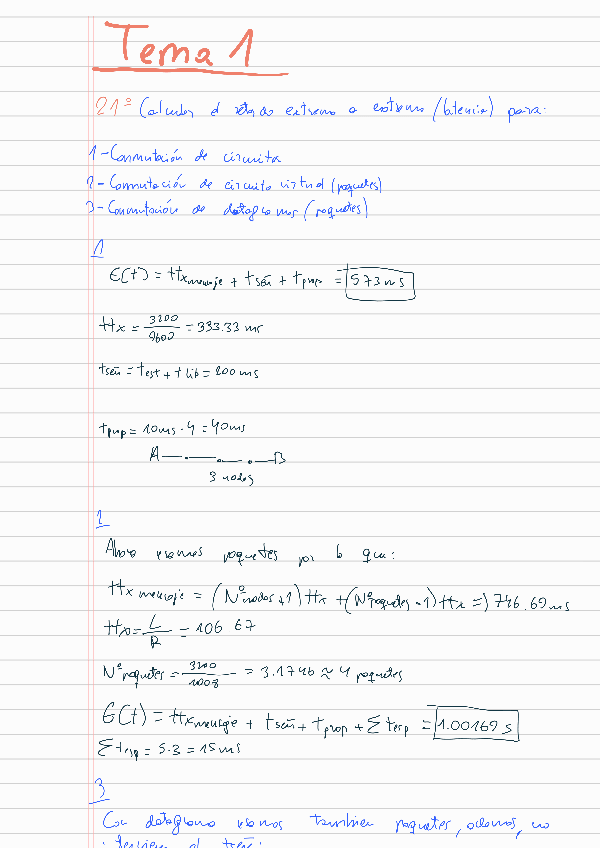 Tema 1
21º Calcular el retardo extremo a extremo (latencia) para:
1-Conmutación de circuita
2-Conmutación de circuito virtual (paquetes)
3-Conmutación de datagramas (paquetes)
1
E(t) = ttx mensaje + tseñ + tprop = 573 ms
ttx = 3200/9600 = 333.33 ms
tseñ = test + tlib = 200 ms
tprop = 10ms · 4 = 40ms
A B
3 nodos
2
Ahora usamos paquetes por lo que:
ttx mensaje = (Nº nodos + 1) ttx + (Nº paquetes - 1) ttx => 746.69 ms
ttx = L/R = 106.67
Nº paquetes = 3200/1008 = 3.1746 ≈ 4 paquetes
E(t) = ttx mensaje + tseñ + tprop + Σ tesp = 1.00169 s
Σ tesp = 5·3 = 15 ms
3
Con datagrama usamos tambien paquetes, ademas, no